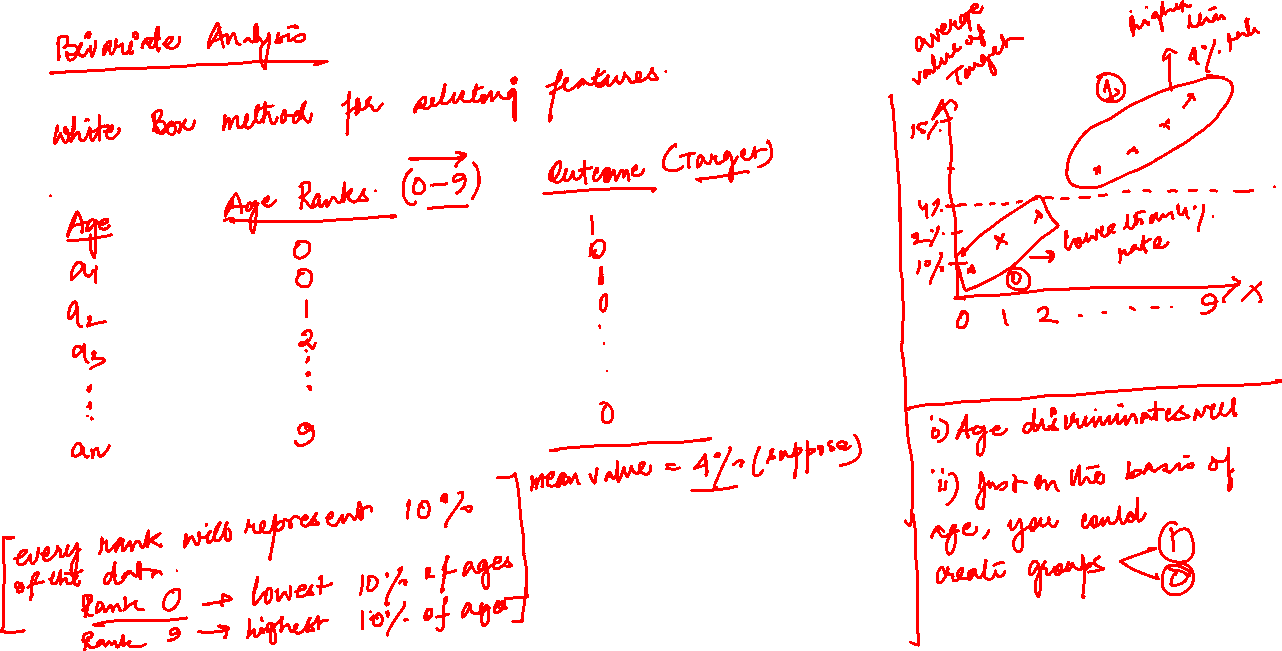 Bivariate Analysis
White Box method for selecting features.
Age
Age Ranks. (0-9)
Outcome (Target)
a1
a2
a3
an
0
0
1
2
9
1
0
1
0
0
mean value = 4% (suppose)
[every rank will represent 10%
of the data.
Rank 0 → lowest 10% of ages
Rank 9 → highest 10% of ages]
average
value of
Target
higher
than
4% rate
1
15%
4%
2%
10%
lower than 4%
rate
0
0 1 2 . . . . . . 9 X
i) Age discriminates well
ii) Just on the basis of
age, you could
create groups
1
0